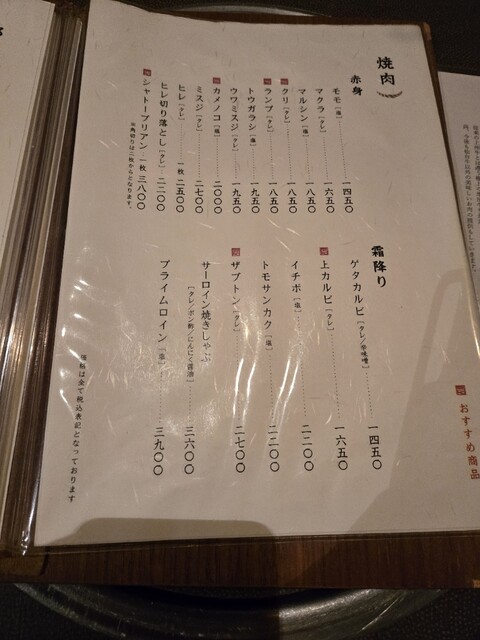 焼肉
赤身
モモ［塩］ 一四五〇
マクラ［タレ］ 一六五〇
マルシン［塩］ 一八五〇
クリ［タレ］ 一八五〇
ランプ［タレ］ 一八五〇
トウガラシ［塩］ 一九五〇
ウワミスジ［タレ］ 一九五〇
カメノコ［塩］ 二〇〇〇
ミスジ［タレ］ 二七〇〇
ヒレ［タレ］ 一枚 二五〇〇
ヒレ切り落とし［タレ］ 二二〇〇
シャトーブリアン 一枚 三八〇〇
※角切りは二枚からとなります。
霜降り
ゲタカルビ［タレ/辛味噌］ 一四五〇
上カルビ［タレ］ 一六五〇
イチボ［塩］ 二二〇〇
トモサンカク［塩］ 二二〇〇
ザブトン［タレ］ 二七〇〇
サーロイン焼きしゃぶ
［タレ/ポン酢/にんにく醤油］ 三六〇〇
プライムロイン［塩］ 三九〇〇
価格は全て税込表記となっております
おすすめ商品